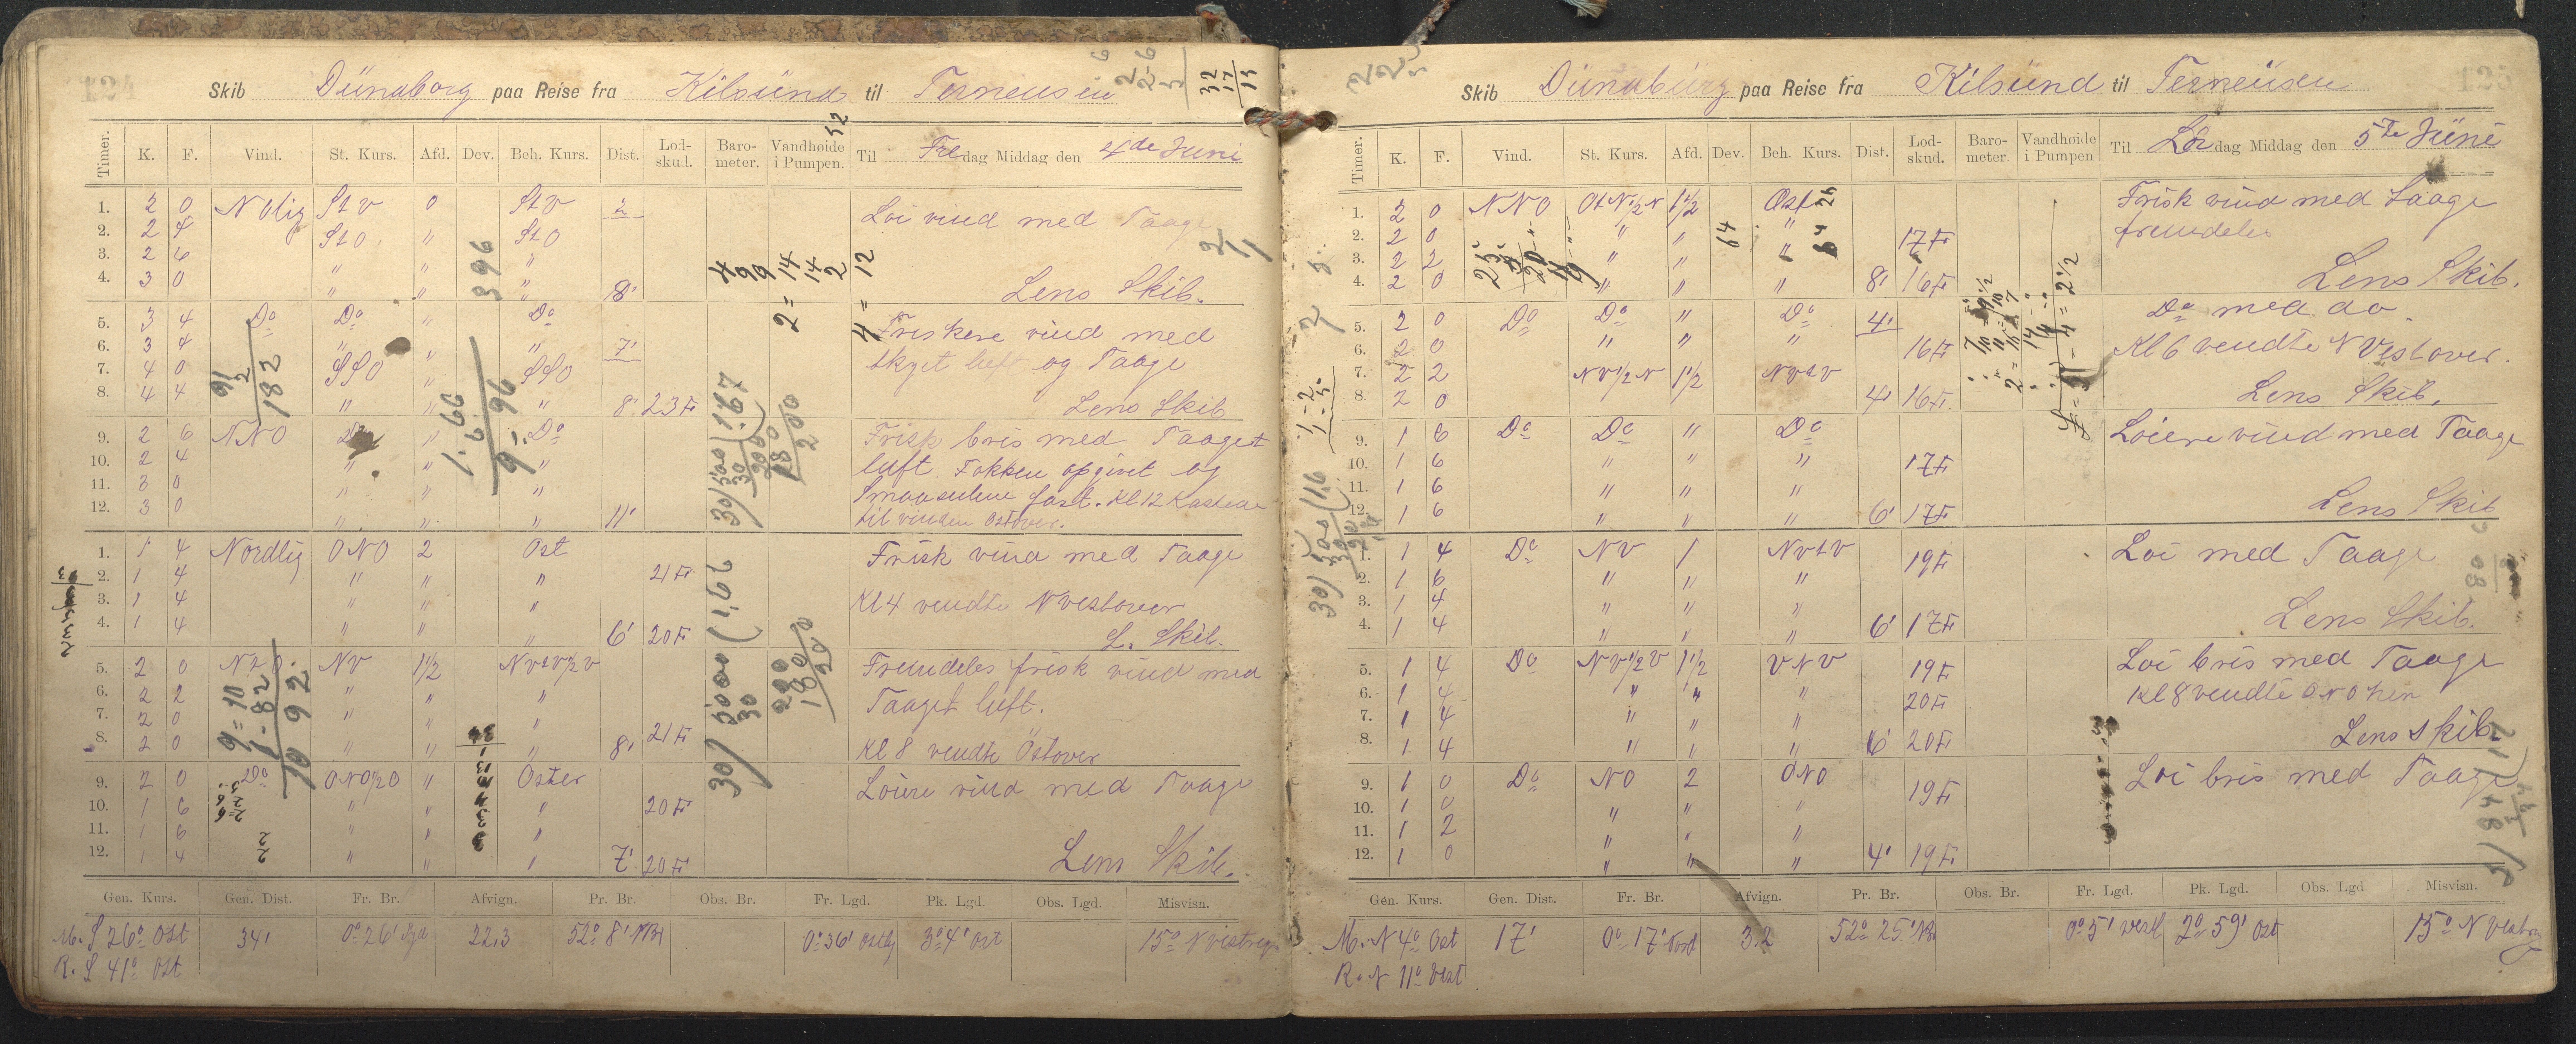 124
Skib Dünaborg paa Reise fra Kilsünd til Terneusen
Timer. K. F. Vind. St. Kurs. Afd. Dev. Beh. Kurs. Dist. Lod-skud. Baro-meter. Vandhøide i Pumpen. Til Fredag Middag den 4de Juni
1. 2 0 N Olig St V 0 St V 2 Löi vind med Taage
2. 2 4 St O " St O
3. 2 6 " " "
4. 3 0 " " " 8' Lens Skib.
5. 3 4 Do Do " Do Friskere vind med
6. 3 4 " " " 7' skyet luft og Taage
7. 4 0 SSO " SSO
8. 4 4 " " " 8' 23 F Lens Skib
9. 2 6 NNO " Do Frisk bris med Taaget
10. 2 4 " " " luft. Fokken opgivet og
11. 3 0 " " " Smaaseilene fast. Kl 12
12. 3 0 " " " 11' til vinden Ostover.
1. 1 4 Nordlig ONO 2 Ost Frisk vind med Taage
2. 1 4 " " " 21 F
3. 1 4 " " " Kl 4 vendte N vestover
4. 1 4 " " " 6' 20 F L. Skib.
5. 2 0 NV 1 1/2 NVtV 1/2 V Fremdeles frisk vind med
6. 2 2 " " " Taaget luft.
7. 2 0 " " " 21 F
8. 2 0 " " " 8' Kl 8 vendte Ostover
9. 2 0 Do ONO 1/2 O " Oster Löiere vind med Taage
10. 1 6 " " " 20 F
11. 1 6 " " "
12. 1 4 " " " 7' 20 F Lens Skib.
Gen. Kurs. Gen. Dist. Fr. Br. Afvign. Pr. Br. Obs. Br. Fr. Lgd. Pk. Lgd. Obs. Lgd. Misvisn.
M. S 26° Ost 34' 0° 26' Syd 22,3 52° 8' NBr 0° 36' Ostlig 3° 4' Ost 15° N vestvis
R. S 41° Ost
125
Skib Dünabürg paa Reise fra Kilsünd til Terneüsen
Timer. K. F. Vind. St. Kurs. Afd. Dev. Beh. Kurs. Dist. Lod-skud. Baro-meter. Vandhøide i Pumpen Til Lördag Middag den 5te Jüni
1. 2 0 NNO Ot N 1/2 N 1 1/2 Ost Frisk vind med Taage
2. 2 0 " " " 17 F fremdeles
3. 2 2 " " "
4. 2 0 " " " 8' 16 F Lens Skib.
5. 2 0 Do Do " Do 4' Do med do.
6. 2 0 " " " 16 F Kl 6 vendte N Vestover.
7. 2 2 NV 1/2 N 1 1/2 NVtV
8. 2 0 4' 16 F. Lens Skib.
9. 1 6 Do Do " Do Löiere vind med Taage
10. 1 6 " " " 17 F
11. 1 6 " " "
12. 1 6 " " " 6' 17 F Lens Skib
1. 1 4 Do NV 1 NVtV 19 F Löi med Taage
2. 1 6 " " "
3. 1 4 " " "
4. 1 4 " " " 6' 17 F Lens Skib.
5. 1 4 Do NV 1/2 V 1 1/2 VNV 19 F Löi bris med Taage
6. 1 4 " " " 20 F Kl 8 vendte ONO hen
7. 1 4 " " "
8. 1 4 " " " 6' 20 F Lens Skib.
9. 1 0 Do NO 2 ONO 19 F Löi bris med Taage
10. 1 0 " " "
11. 1 2 " " "
12. 1 0 " " " 4' 19 F
Gen. Kurs. Gen. Dist. Fr. Br. Afvign. Pr. Br. Obs. Br. Fr. Lgd. Pk. Lgd. Obs. Lgd. Misvisn.
M. N 4° Ost 17' 0° 17' Nord 3.2 52° 25' NBr 0° 5' vest 2° 59' Ost 15° N Vestvis
R. N 11° Vest